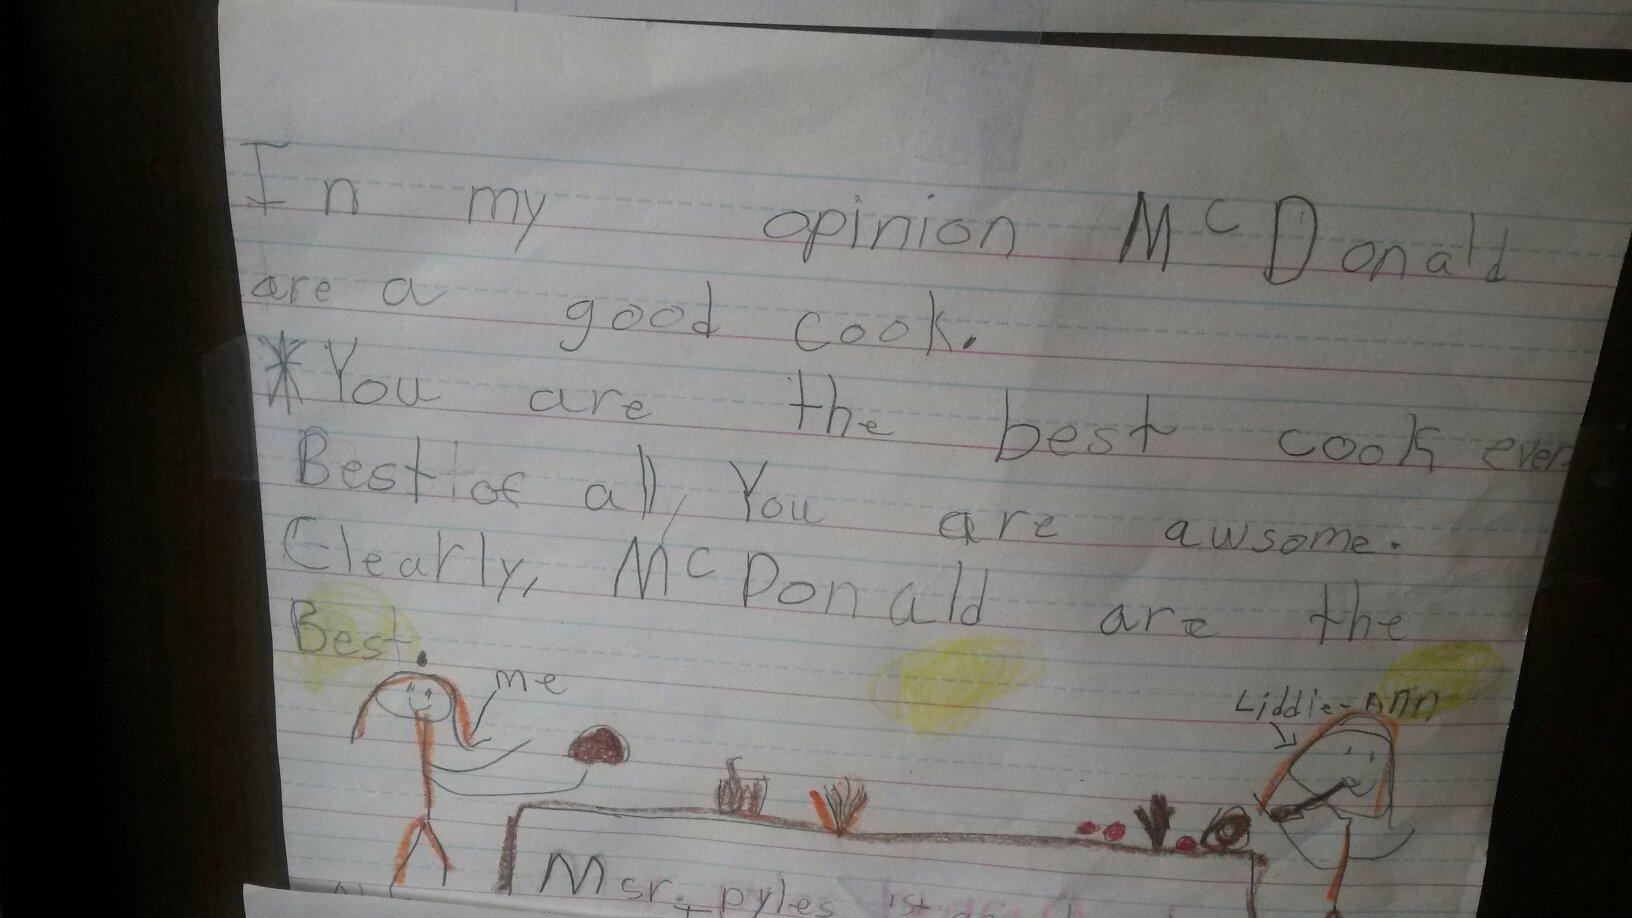 In my opinion McDonald
are a good cook.
*You are the best cook ever
Best of all, You are awsome.
Clearly, McDonald are the
Best.
me
Liddie-Ann
Msr. pyles 1st